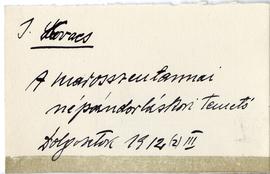 J. Kovacs
A marosszentannai
népvándorláskori temető
Dolgozatok 1912 (2) III